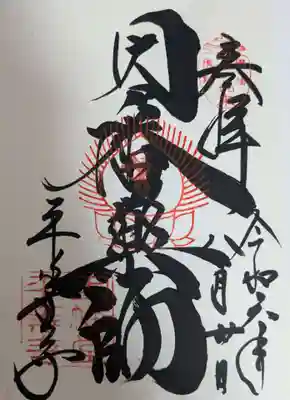 奉拝
令和六年
八月廿日
因幡薬師
平等寺